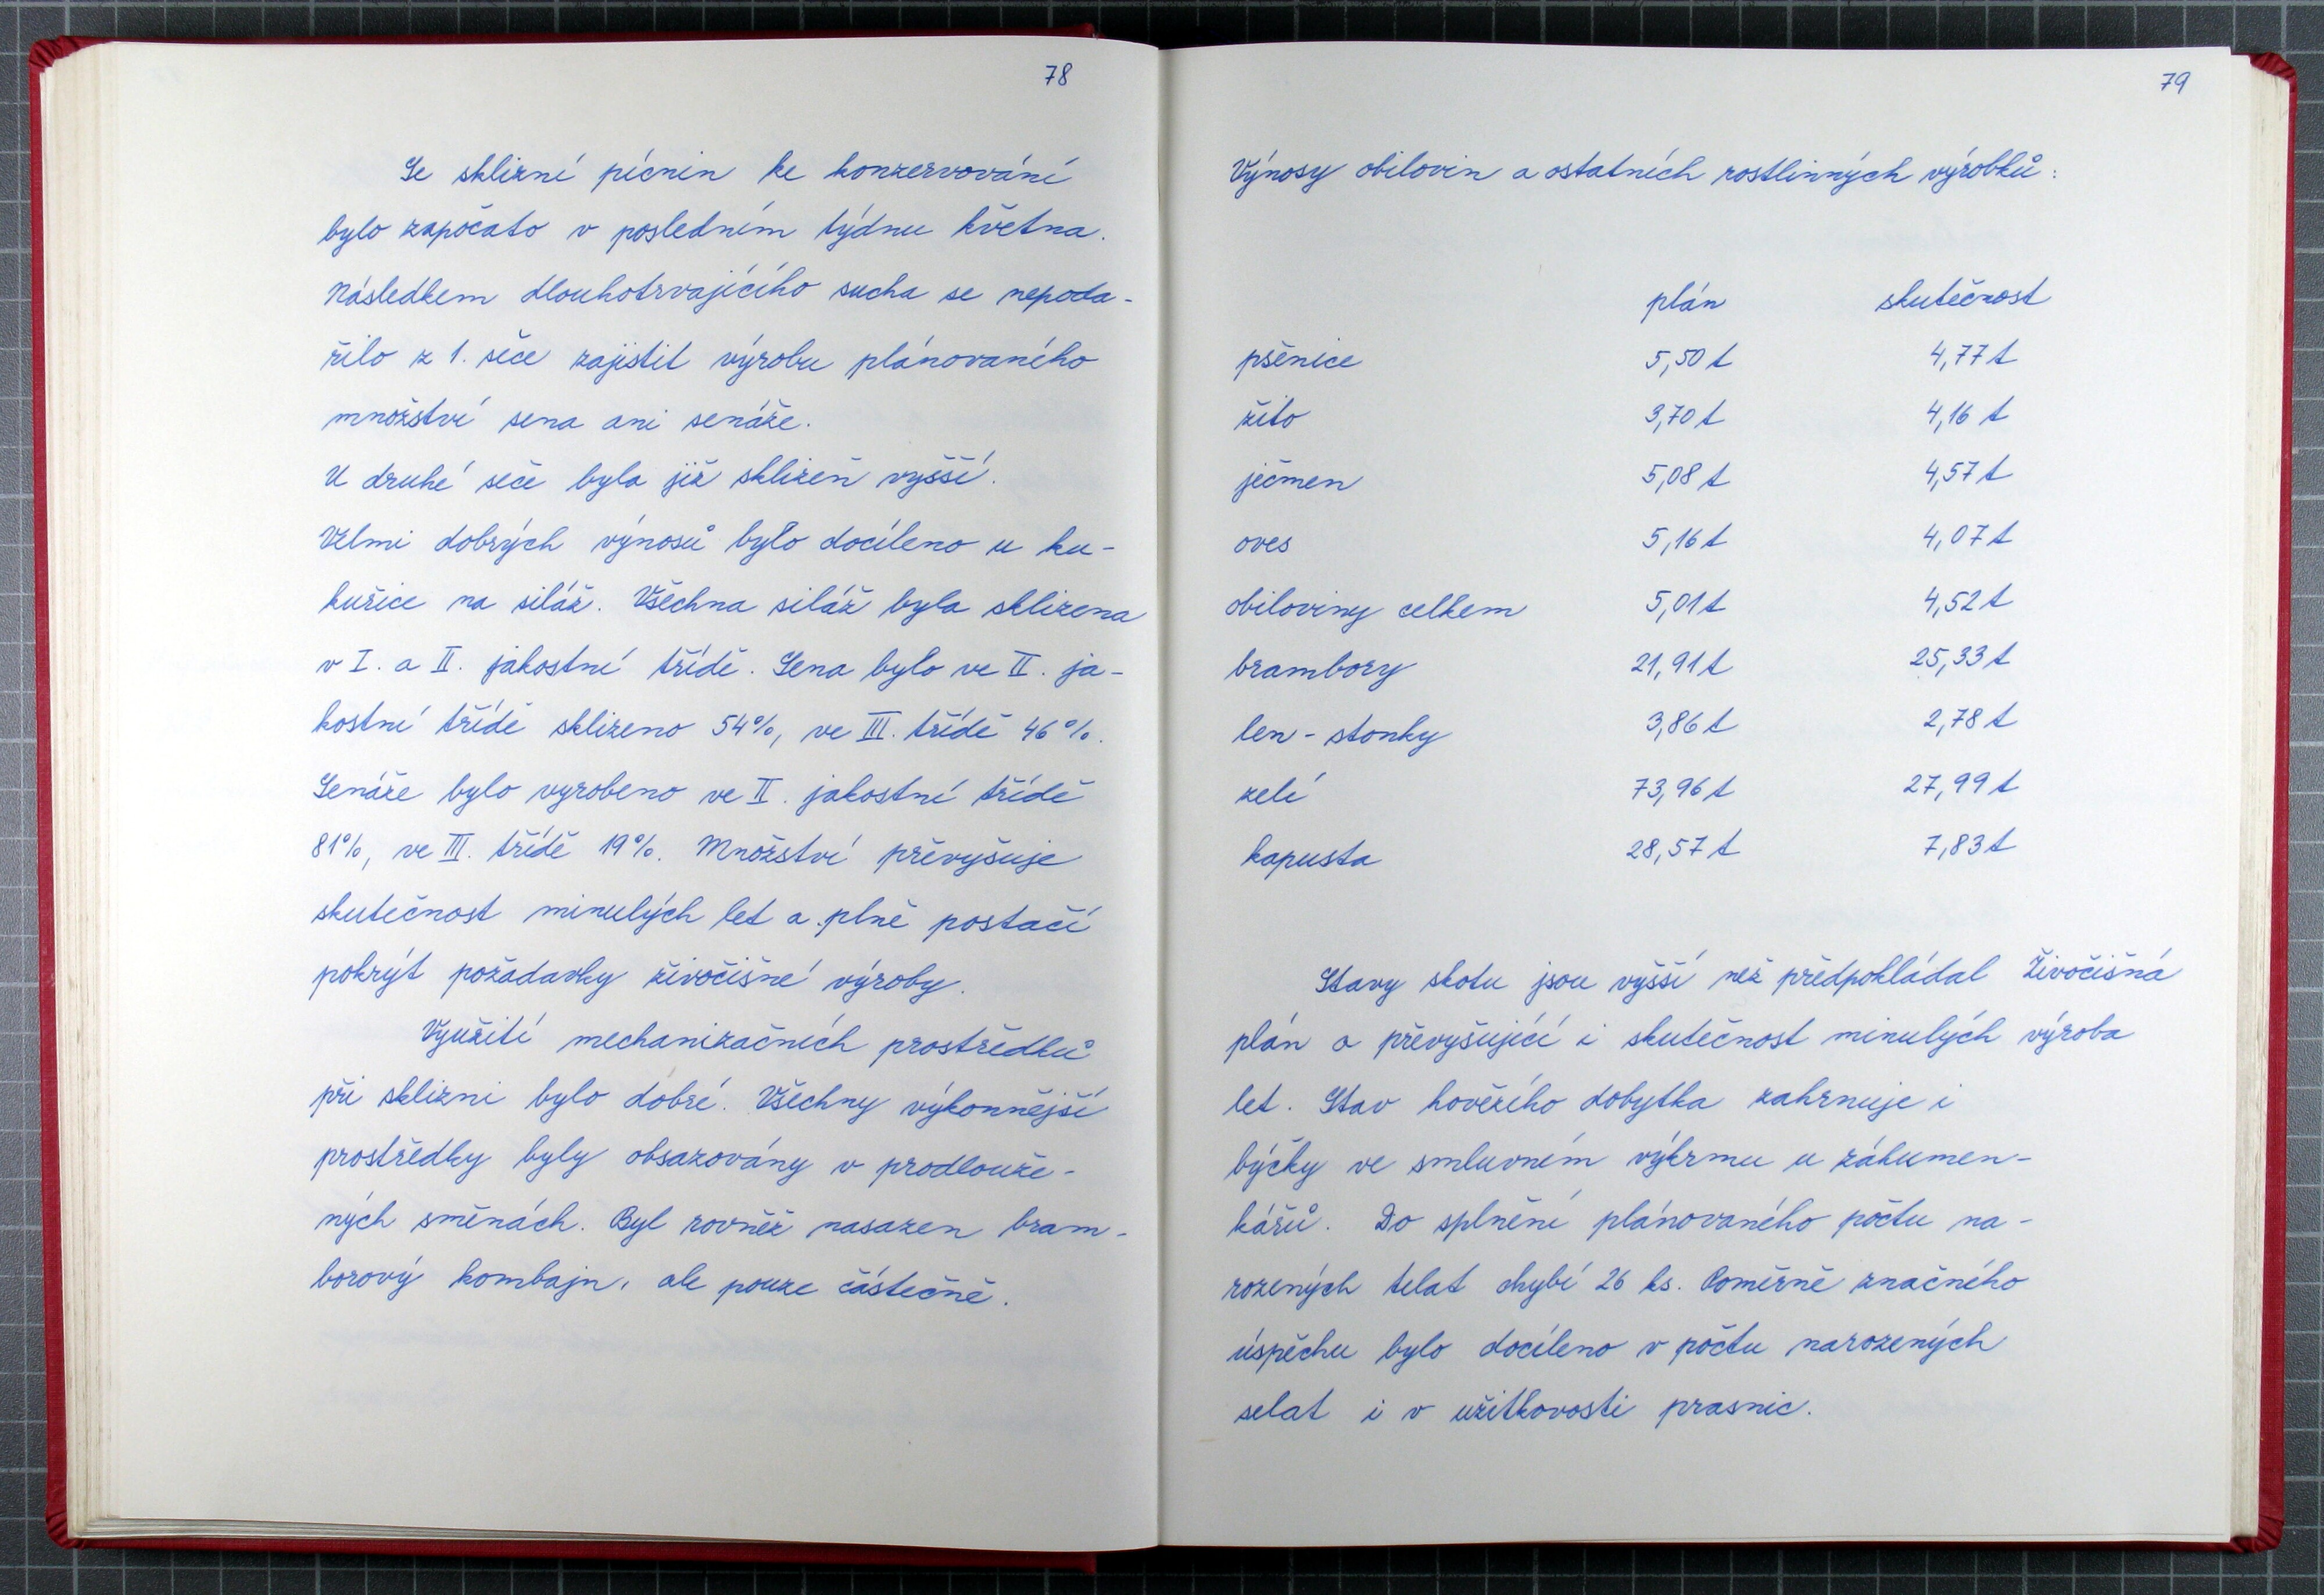 78
Se sklizní pícnin ke konzervování
bylo započato v posledním týdnu května.
Následkem dlouhotrvajícího sucha se nepoda-
řilo z 1. seče zajistit výrobu plánovaného
množství sena ani senáže.
U druhé seče byla již sklizeň vyšší.
Velmi dobrých výnosů bylo docíleno u ku-
kuřice na siláž. Všechna siláž byla sklizena
v I. a II. jakostní třídě. Sena bylo ve II. ja-
kostní třídě sklizeno 54%, ve III. třídě 46%.
Senáže bylo vyrobeno ve II. jakostní třídě
81%, ve III. třídě 19%. Množství převyšuje
skutečnost minulých let a plně postačí
pokrýt požadavky živočišné výroby.
Využití mechanizačních prostředků
při sklizni bylo dobré. Všechny výkonnější
prostředky byly obsazovány v prodlouže-
ných směnách. Byl rovněž nasazen bram-
borový kombajn, ale pouze částečně.
79
Výnosy obilovin a ostatních rostlinných výrobků:
plán skutečnost
pšenice 5,50 t 4,77 t
žito 3,70 t 4,16 t
ječmen 5,08 t 4,57 t
oves 5,16 t 4,07 t
obiloviny celkem 5,01 t 4,52 t
brambory 21,91 t 25,33 t
len - stonky 3,86 t 2,78 t
zelí 73,96 t 27,99 t
kapusta 28,57 t 7,83 t
Stavy skotu jsou vyšší než předpokládal Živočišná
plán a převyšující i skutečnost minulých výroba
let. Stav hovězího dobytka zahrnuje i
býčky ve smluvném výkrmu u záhumen-
kářů. Do splnění plánovaného počtu na-
rozených telat chybí 26 ks. Poměrně značného
úspěchu bylo docíleno v počtu narozených
selat i v užitkovosti prasnic.